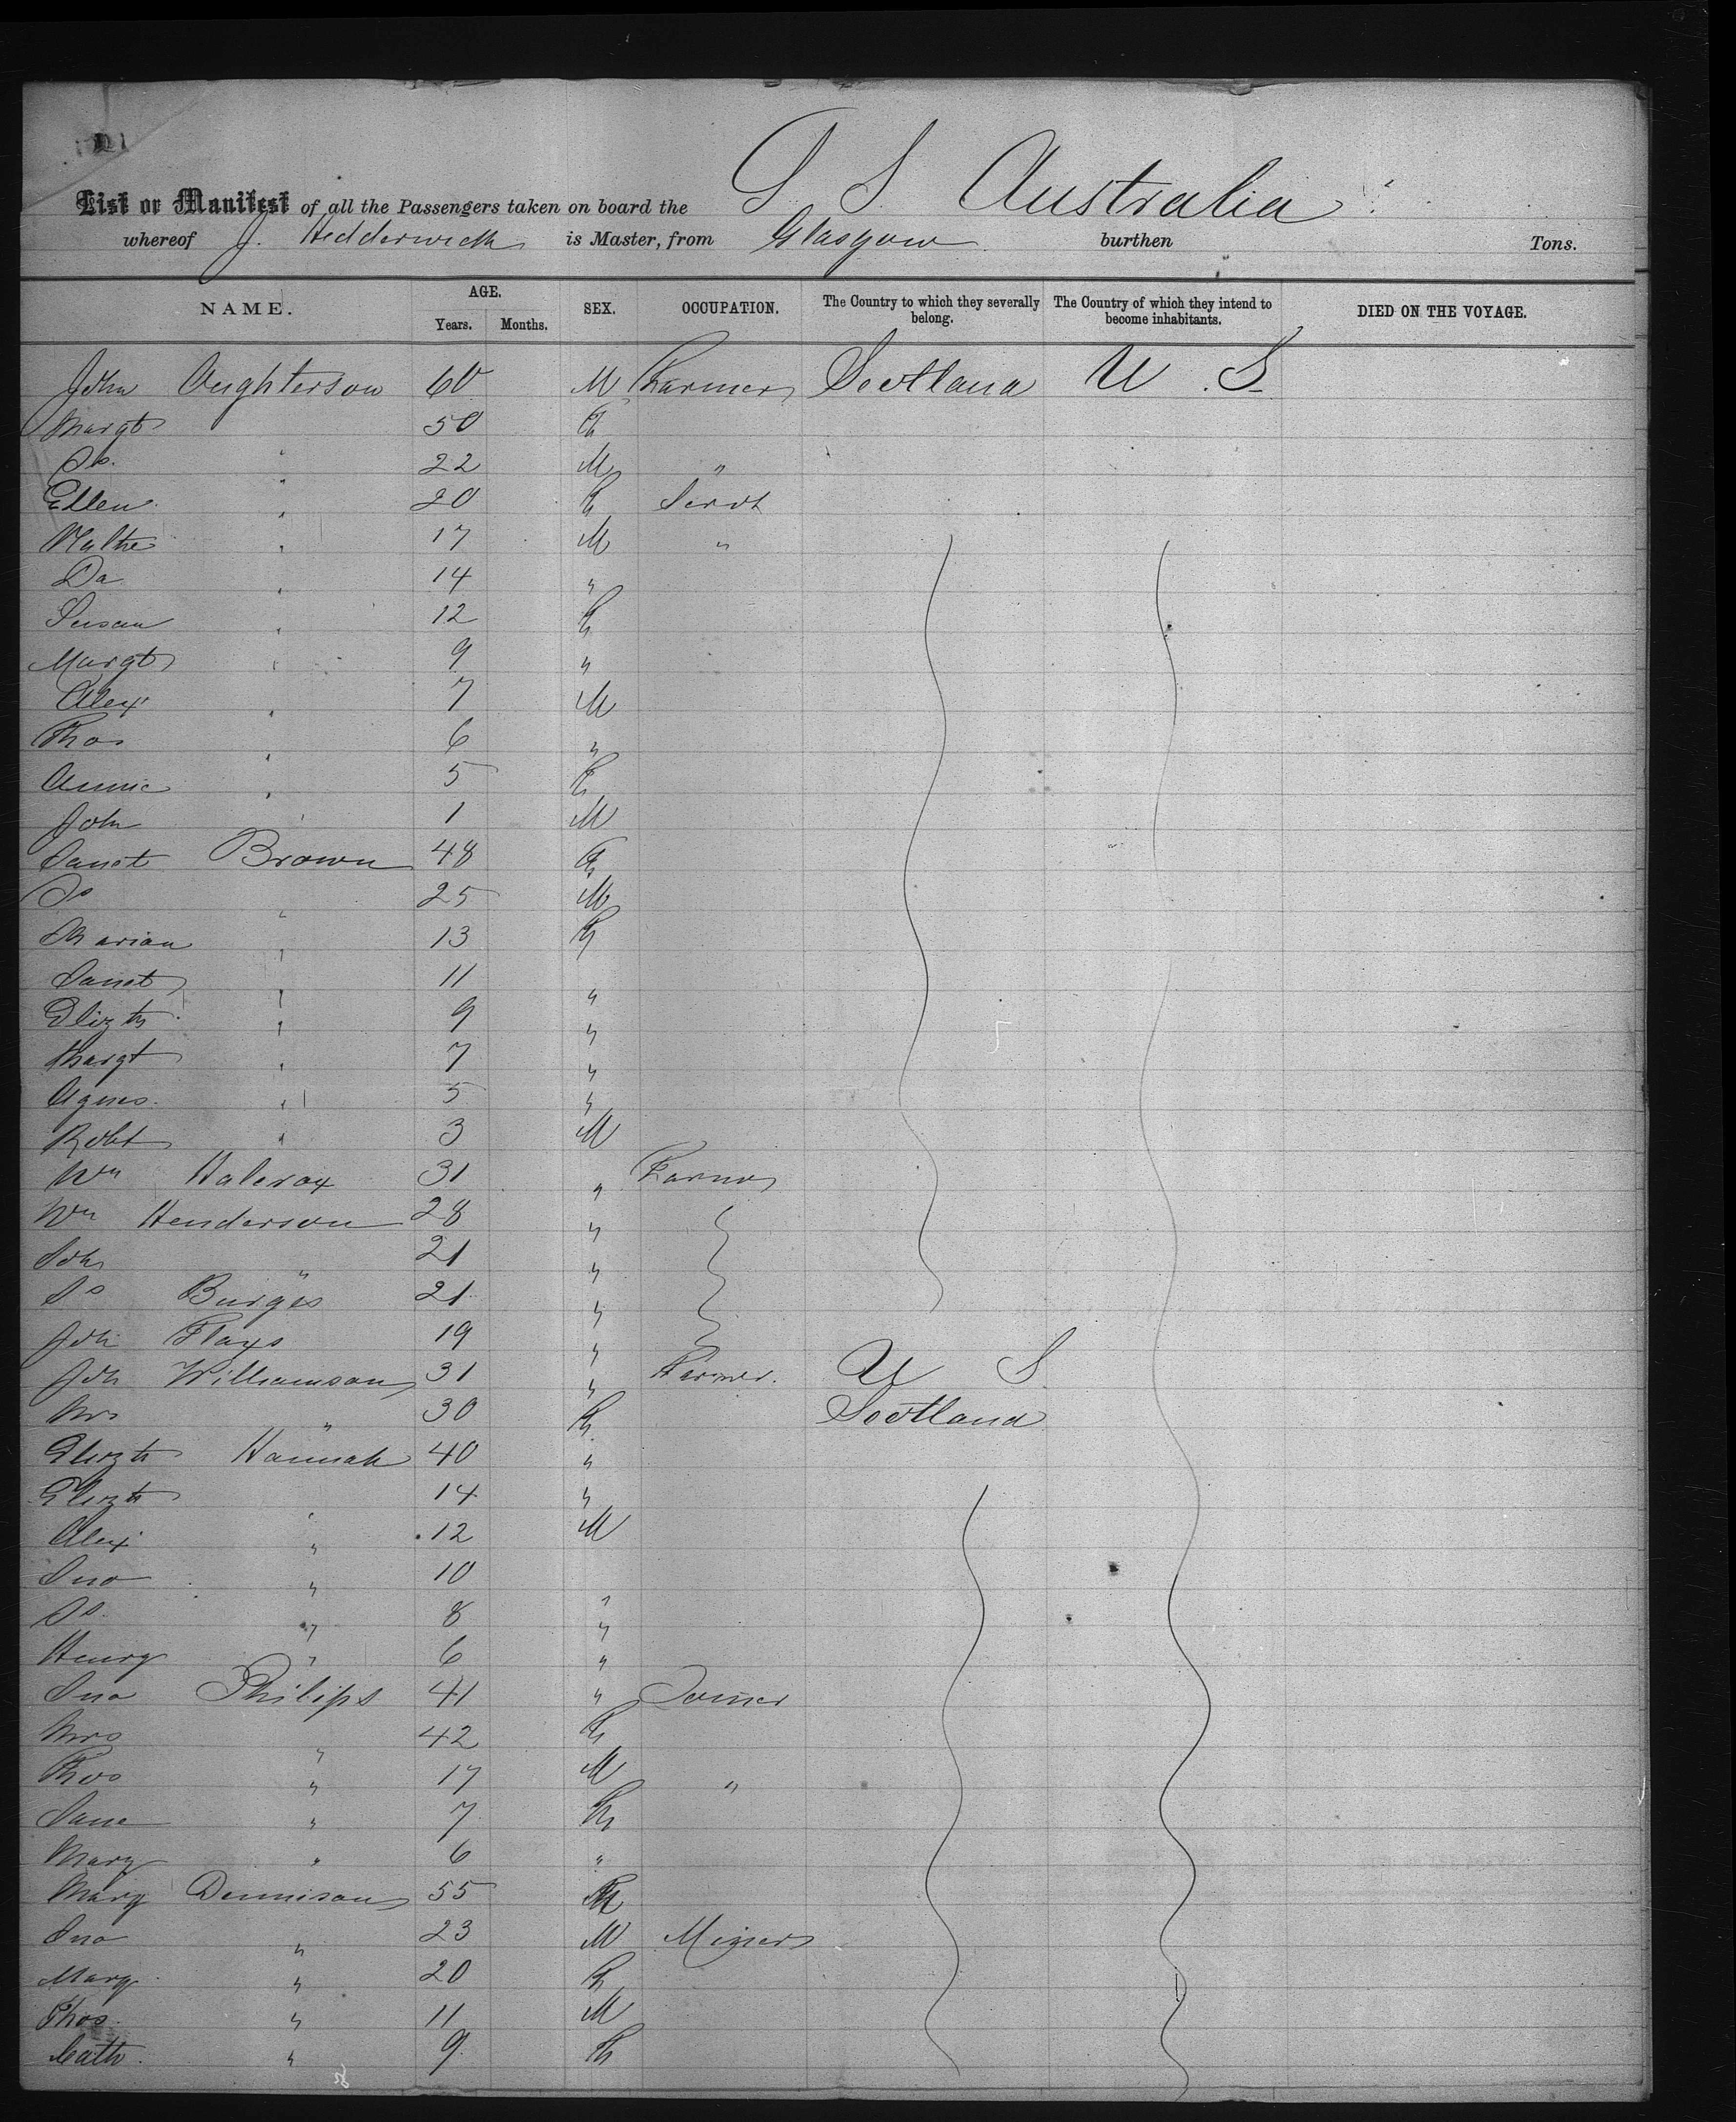 List or Manifest of all the Passengers taken on board the S S Australia
whereof J. Hedderwick is Master, from Glasgow burthen Tons.
NAME. AGE. SEX. OCCUPATION. The Country to which they severally belong. The Country of which they intend to become inhabitants. DIED ON THE VOYAGE.
Years. Months.
John Aughterson 60 M Farmer Scotland U. S.
Margt 50 F
Js. " 22 M "
Ellen " 20 F Servt
" 17 M "
Da " 14 "
Susan " 12 F
Margt " 9 "
Alex " 7 M
Thos " 6 "
Annie " 5 F
John " 1 M
Janet Brown 48 F
Js " 25 M
Marian " 13 F
Janet " 11 "
Elizth " 9 "
Margt " 7 "
Agnes " 5 "
Robt " 3 M
Wm 31 " Farmer
Wm Henderson 28 "
Joh " 21 "
Js Burges 21 "
Joh Flays 19 "
Joh Williamson 31 " Farmer. U S
Mrs " 30 F Scotland
Elizth Hannah 40 "
Elizth " 14 "
Alex " 12 M
Jno " 10 "
Js. " 8 "
Henry " 6 "
Jno Philips 41 " Joiner
Mrs " 42 F
Thos " 17 M "
Jane " 7 F
Mary " 6 "
Mary Dennison 55 F
Jno " 23 M Miner
Mary " 20 F
Thos. " 11 M
Cath. " 9 F